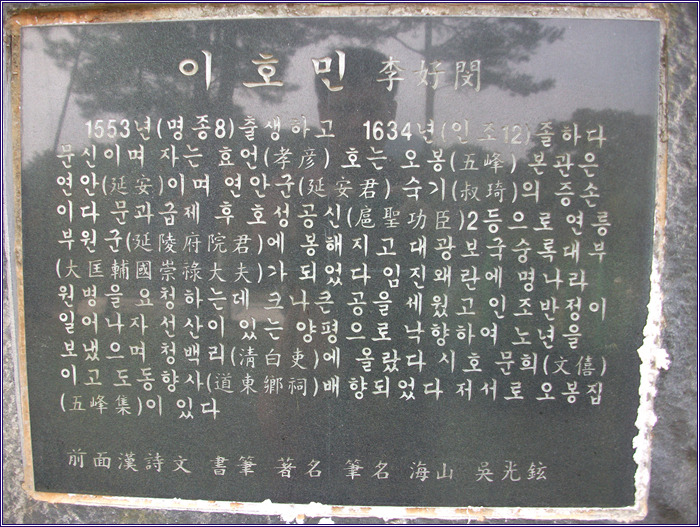 이호민 李好閔
1553년(명종8)출생하고 1634년(인조12)졸하다
문신이며 자는 효언(孝彦) 호는 오봉(五峰) 본관은
연안(延安)이며 연안군(延安君) 숙기(叔琦)의 증손
이다 문과급제 후 호성공신(扈聖功臣)2등으로 연릉
부원군(延陵府院君)에 봉해지고 대광보국숭록대부
(大匡輔國崇祿大夫)가 되었다 임진왜란에 명나라
원병을 요청하는데 크나큰 공을 세웠고 인조반정이
일어나자 선산이 있는 양평으로 낙향하여 노년을
보냈으며 청백리(清白吏)에 올랐다 시호 문희(文僖)
이고 도동향사(道東鄕祠)배향되었다 저서로 오봉집
(五峰集)이 있다
前面漢詩文 書筆 著名 筆名 海山 吳光鉉